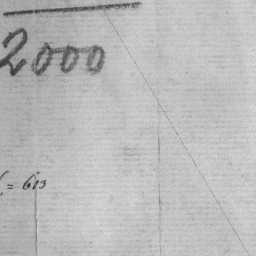 2000
= 613